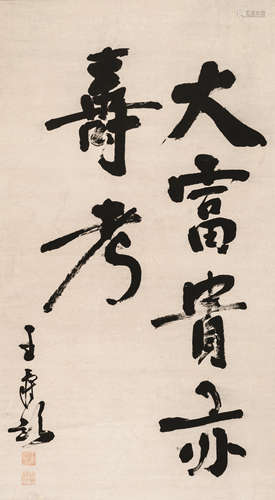 大富貴亦
壽考
王